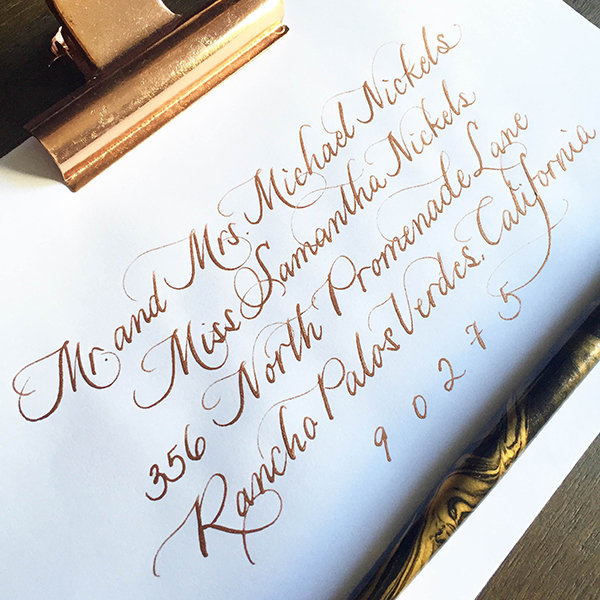 Mr. and Mrs. Michael Nickels
Miss Samantha Nickels
356 North Promenade Lane
Rancho Palos Verdes, California
90275